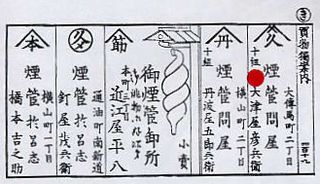 き
買物獨案内
大傳馬町二丁目
久
十組
煙管問屋
大津屋彦兵衛
横山町二丁目
丹
十組
煙管問屋
丹波屋五郎兵衛
小賣
御煙管卸所
筋
近江屋平八
通油町南新道
久
煙管於ろ志
釘屋茂兵衛
横山町二丁目
本
煙管於ろ志
橋本吉之助